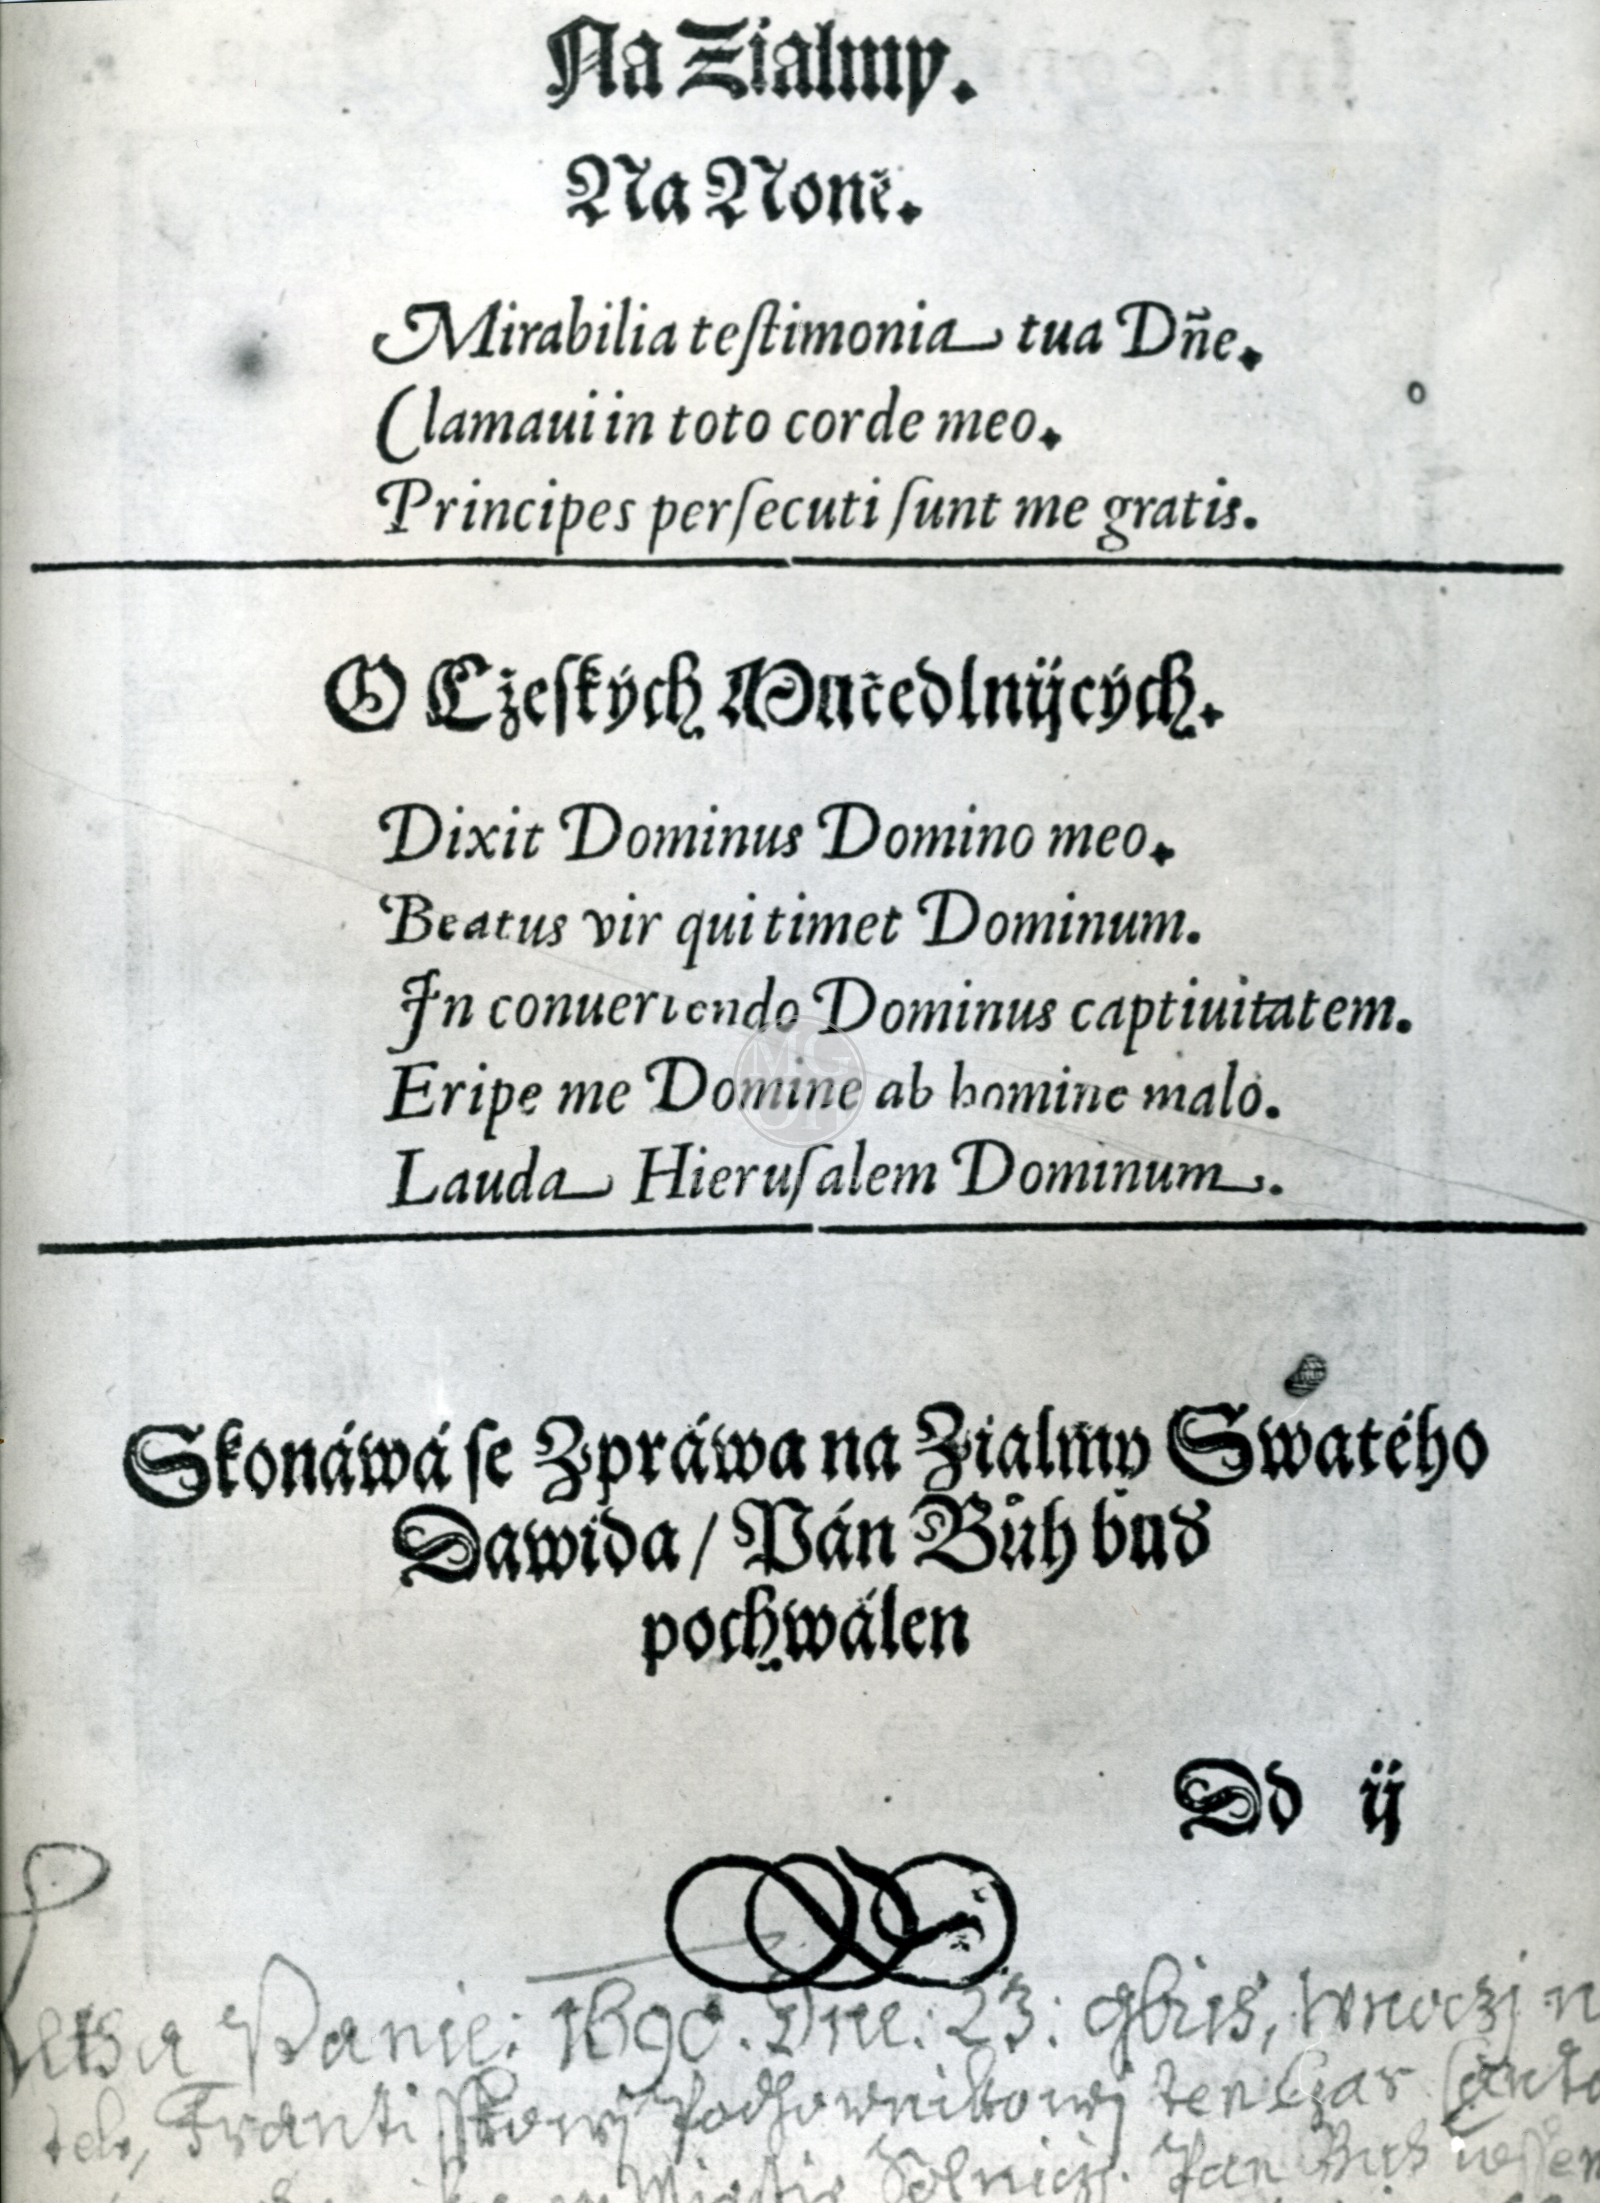 Na Zialmy.
Na Noně.
Mirabilia teſtimonia tua Dñe.
Clamaui in toto corde meo.
Principes perſecuti ſunt me gratis.
O Cžeſkých Mučedlnijcých.
Dixit Dominus Domino meo.
Beatus vir qui timet Dominum.
In conuertendo Dominus captiuitatem.
Eripe me Domine ab homine malo.
Lauda Hieruſalem Dominum.
Skonáwá ſe Zpráwa na Zialmy Swatého
Dawida / Pán Bůh bud
pochwálen
Dd ij
Letha Panie: 1690. Dne: 23: 9bris, wnoczj
Frantiſſkowj ten Czas
Pan Buh